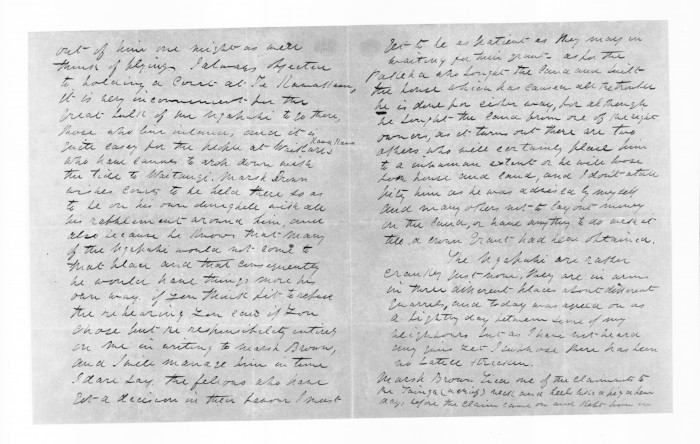 out of him one might as well
think of flying. I always objected
to holding a Court at Te
It is very inconvenient for the
great bulk of the Ngapuhi to go there,
those who live inland, and it is
quite easy for the people at
who have canoes to come down with
the tide to Waitangi. Marsh Brown
wishes Court to be held there so as
to be on his own dunghill with all
his rabblement around him, and
also because he knows that many
of the Ngapuhi would not come to
that place and that consequently
he would have things more his
own way. If you think fit to refuse
the rehearing you could if you
chose put the responsibility entirely
on me in writing to Marsh Brown,
and I will manage him in time
I dare say. The fellows who have
got a decision in their favour I must
get to be as patient as they may in
waiting for their grant. As for the
Pakeha who bought the land and built
the house which has caused all the trouble
he is done for either way, for although
he bought the land from one of the right
owners, as it turns out there are two
others who will certainly
to a extent or he will lose
both house and land, and I don't at all
pity him as he was advised by myself
and many others not to lay out money
on the land, or have anything to do with it
till a Crown Grant had been obtained.
The Ngapuhi are rather
cranky just now, they are in arms
in three different places about different
quarrels, and today was agreed on as
a fighting day between some of my
neighbours but as I have not heard
any guns yet I suppose there has been
no battle stricken.
Marsh Brown tied one of the claimants to
the Tainga neck and heels like a pig a few
days before the claim came on and kept him in